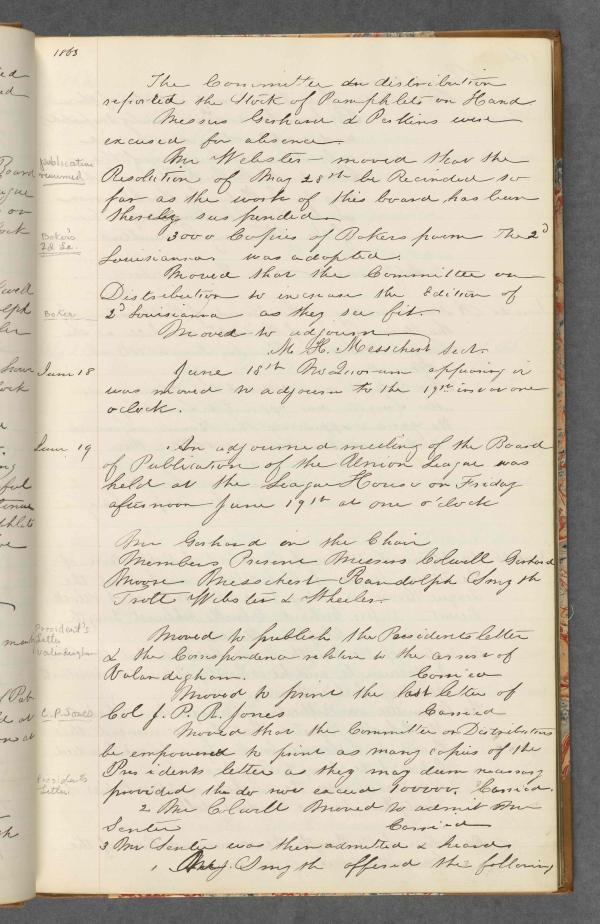 1863
The Committee on distribution
reported the Stock of Pamphlets on Hand
Messrs Gerhard & Perkins were
excused for absence.
publication
resumed
Mr Webster - moved that the
Resolution of May 28th be Recinded so
far as the work of this board has been
thereby suspended
Boker's
2d La.
3000 Copies of Bokers poem The 2d
Louisianna was adopted.
Moved that the Committee on
Distribution to increase the Edition of
Boker
2d Louisianna as they see fit.
Moved to adjourn
M. H. Messchert Sect.
June 18
June 18th No Quorum appearing it
was moved to adjourn to the 19th inst at one
oclock.
June 19
An adjourned meeting of the Board
of Publication of the Union League was
held at the League House on Friday
afternoon June 19th at one o'clock
Mr Gerhard in the Chair
Members Present Messrs Colwell Gerhard
Moore Messchert Randolph Smyth
Trott Webster & Wheeler.
President's
Letter
Valandigham
Moved to publish the Presidents letter
& the Correspondence relative to the arrest of
Valandigham. Carried
Moved to print the last letter of
Col J. P. R. Jones Carried
Moved that the Committee on Distribution
be empowered to print as many copies of the
Presidents
Letter.
Presidents letter as they may deem necessary
provided the do not exceed 100000. Carried.
2 Mr Colwell Moved to admit Mr
Senter Carried
3 Mr Senter was then admitted & heard
1 Mr J. Smyth offered the following